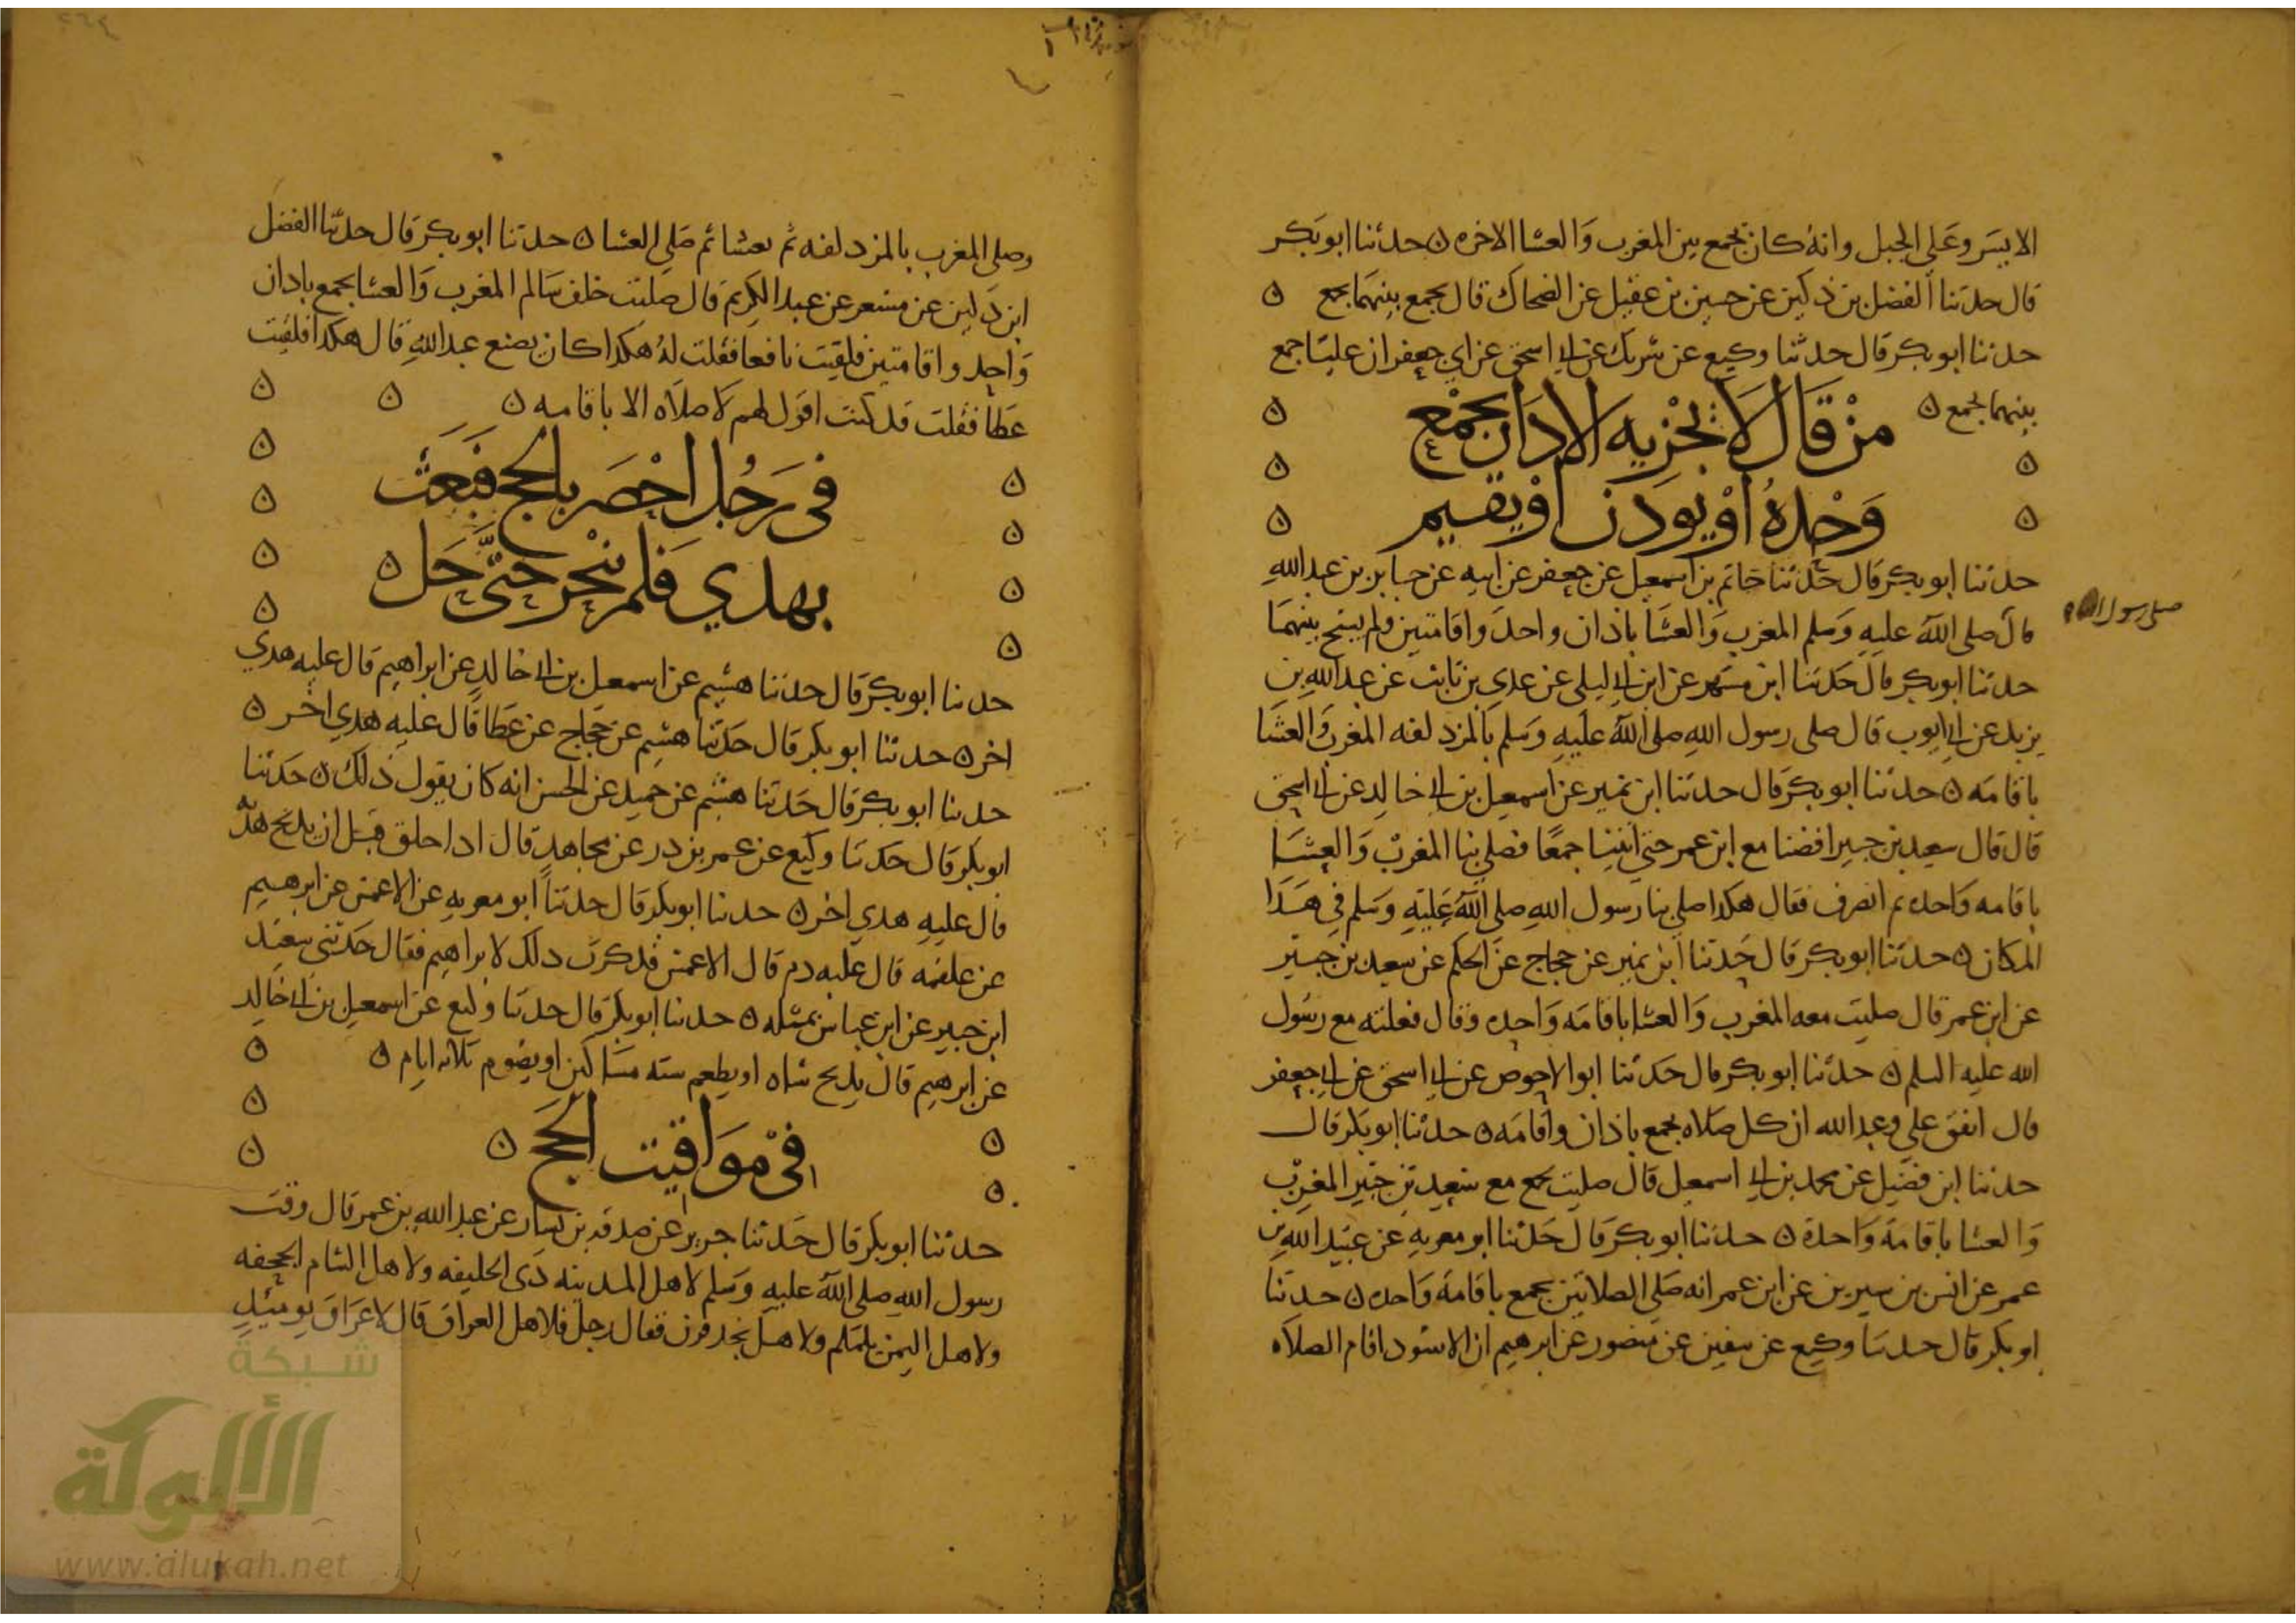 الايسر وعلى الجبل وانه كان يجمع بين المغرب والعشا الاخره ن حدثنا ابو بكر
قال حدثنا الفضل بن دكين عن حسين بن عقيل عن الضحاك قال يجمع بينهما بجمع ن
حدثنا ابو بكر قال حدثنا وكيع عن شريك عن ابي اسحق عن ابي جعفر ان عليا جمع
بينهما بجمع ن
من قال لا تجزيه الاذان بجمع
وحده او يوذن او يقيم
حدثنا ابو بكر قال حدثنا حاتم بن اسمعيل عن جعفر عن ابيه عن جابر بن عبد الله
قال صلى الله عليه وسلم المغرب والعشا باذان واحد واقامتين ولم يسبح بينهما
صلى رسول الله
حدثنا ابو بكر قال حدثنا ابن مسهر عن ابن ابي ليلى عن عدي بن ثابت عن عبد الله بن
يزيد عن ابي ايوب قال صلى رسول الله صلى الله عليه وسلم بالمزدلفه المغرب والعشا
باقامه ن حدثنا ابو بكر قال حدثنا ابن نمير عن اسمعيل بن ابي خالد عن ابي اسحق
قال قال سعيد بن جبير افضنا مع ابن عمر حتى اتينا جمعا فصلى بنا المغرب والعشا
باقامه واحده ثم انصرف فقال هكذا صلى بنا رسول الله صلى الله عليه وسلم في هذا
المكان ن حدثنا ابو بكر قال حدثنا ابن نمير عن حجاج عن الحكم عن سعيد بن جبير
عن ابن عمر قال صليت معه المغرب والعشا باقامه واحده وقال فعلته مع رسول
الله عليه السلم ن حدثنا ابو بكر قال حدثنا ابو الاحوص عن ابي اسحق عن ابي جعفر
قال اتفق علي وعبد الله ان كل صلاه بجمع باذان واقامه ن حدثنا ابو بكر قال
حدثنا ابن فضيل عن محمد بن ابي اسمعيل قال صليت بجمع مع سعيد بن جبير المغرب
والعشا باقامة واحدة ن حدثنا ابو بكر قال حدثنا ابو معويه عن عبيد الله بن
عمر عن انس بن سيرين عن ابن عمر انه صلى الصلاتين بجمع باقامة واحده ن حدثنا
ابو بكر قال حدثنا وكيع عن سفين عن منصور عن ابرهيم ان الاسود اقام الصلاه
وصلى المغرب بالمزدلفه ثم تعشا ثم صلى العشا ن حدثنا ابو بكر قال حدثنا الفضل
ابن دكين عن مسعر عن عبد الكريم قال صليت خلف سالم المغرب والعشا بجمع باذان
واحد واقامتين فلقيت نافعا فقلت له هكذا كان يصنع عبد الله قال هكذا فلقيت
عطا فقلت قد كنت اقول لهم لا صلاه الا باقامه ن
في رجل احصر بالحج فبعث
بهدي فلم ينحر حتى حل ن
حدثنا ابو بكر قال حدثنا هشيم عن اسمعيل بن ابي خالد عن ابراهيم قال عليه هدي
اخر ن حدثنا ابو بكر قال حدثنا هشيم عن حجاج عن عطا قال عليه هدي اخر ن
حدثنا ابو بكر قال حدثنا هشيم عن حميد عن الحسن انه كان يقول ذلك ن حدثنا
ابو بكر قال حدثنا وكيع عن عمر بن ذر عن مجاهد قال اذا حلق قبل ان يذبح هديه
قال عليه هدي اخر ن حدثنا ابو بكر قال حدثنا ابو معويه عن الاعمش عن ابرهيم
عن علقمه قال عليه دم قال الاعمش فذكرت ذلك لابراهيم فقال حدثني سعيد
ابن جبير عن ابن عباس بمثله ن حدثنا ابو بكر قال حدثنا وكيع عن اسمعيل بن ابي خالد
عن ابرهيم قال يذبح شاه او يطعم سته مساكين او يصوم ثلاثه ايام ن
في مواقيت الحج ن
حدثنا ابو بكر قال حدثنا جرير عن صدقه بن يسار عن عبد الله بن عمر قال وقت
رسول الله صلى الله عليه وسلم لاهل المدينه ذي الحليفه ولاهل الشام الجحفه
ولاهل اليمن يلملم ولاهل نجد قرن فقال رجل فلاهل العراق قال لا عراق يوميذ
شبكة
الألوكة
www.alukah.net